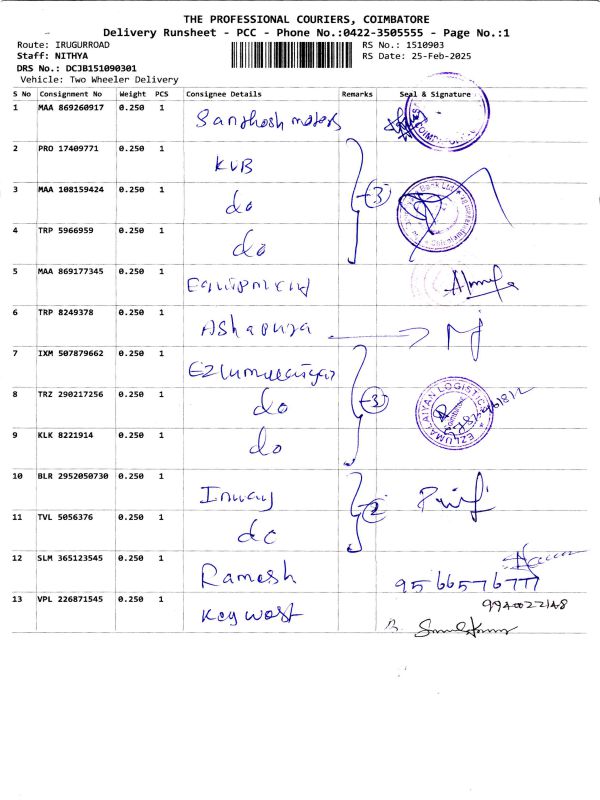 THE PROFESSIONAL COURIERS, COIMBATORE
Delivery Runsheet - PCC - Phone No.:0422-3505555 - Page No.:1
Route: IRUGURROAD
RS No.: 1510903
Staff: NITHYA
RS Date: 25-Feb-2025
DRS No.: DCJB151090301
Vehicle: Two Wheeler Delivery
S No Consignment No Weight PCS Consignee Details Remarks Seal & Signature
1 MAA 869260917 0.250 1 Santhosh motors
2 PRO 17409771 0.250 1 KVB
3 MAA 108159424 0.250 1 do 3
4 TRP 5966959 0.250 1 do
5 MAA 869177345 0.250 1 Equipment
6 TRP 8249378 0.250 1 Ashapura
7 IXM 507879662 0.250 1 Ezlumalaiyan
8 TRZ 290217256 0.250 1 do 3 EZLUMALAIYAN LOGISTIC
9 KLK 8221914 0.250 1 do
10 BLR 2952050730 0.250 1 Inway 2
11 TVL 5056376 0.250 1 do
12 SLM 365123545 0.250 1 Ramesh 9566576777
13 VPL 226871545 0.250 1 Key west 9940022148